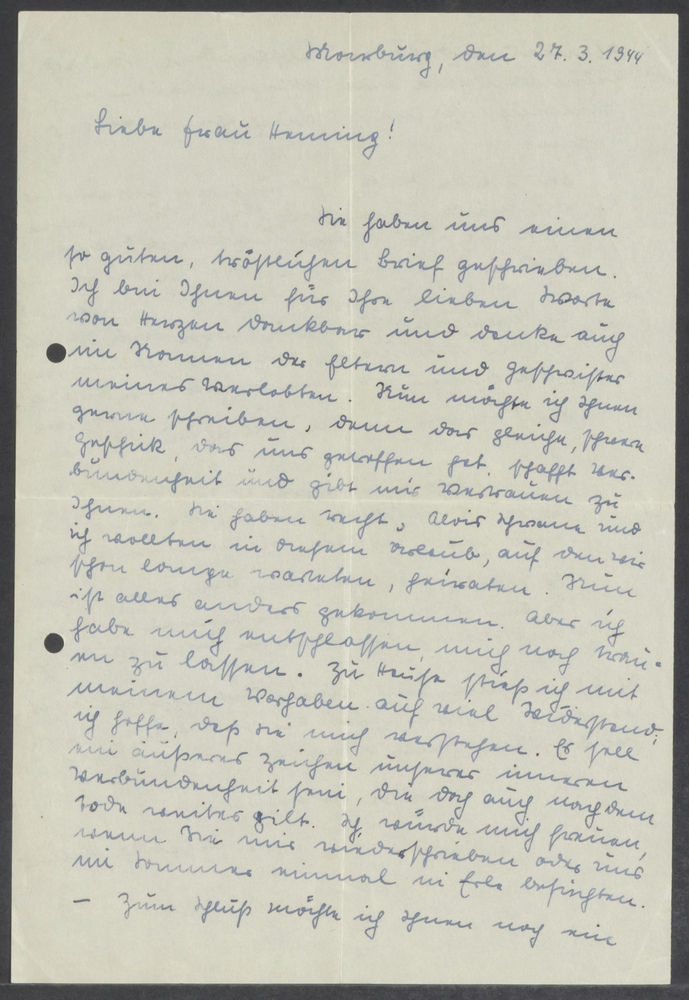 Marburg, den 27. 3. 1944
Liebe Frau Henning!
Sie haben uns einen
so guten, tröstlichen Brief geschrieben.
Ich bin Ihnen für Ihre lieben Worte
von Herzen dankbar und danke auch
im Namen der Eltern und Geschwister
meines Verlobten. Nun möchte ich Ihnen
gerne schreiben, denn das gleiche, schwere
Geschick, das uns getroffen hat, schafft Ver-
bundenheit und gibt mir Vertrauen zu
Ihnen. Sie haben recht, Alois und
ich wollten in diesem Urlaub, auf den wir
schon lange warteten, heiraten. Nun
ist alles anders gekommen. Aber ich
habe mich entschlossen, mich noch trau-
en zu lassen. Zu Hause stieß ich mit
meinem Vorhaben auf viel Widerstand;
ich hoffe, daß Sie mich verstehen. Es soll
ein äußeres Zeichen unserer inneren
Verbundenheit sein, die doch auch nach dem
Tode weiter gilt. Ich würde mich freuen,
wenn Sie mir wiederschrieben oder uns
im Sommer einmal in Erle besuchten.
- Zum Schluß möchte ich Ihnen noch ein